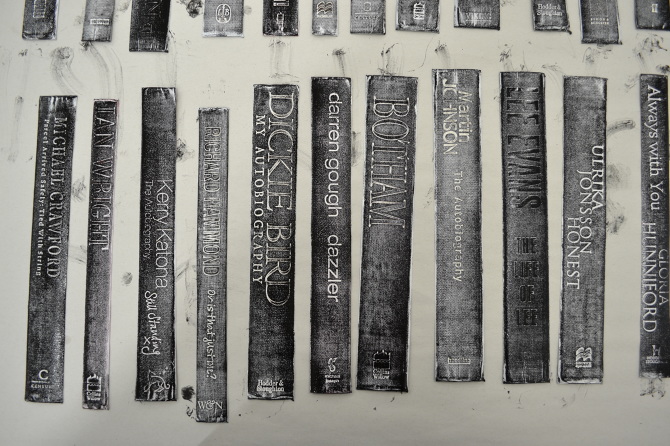 MICHAEL CRAWFORD
Parcel Arrived Safely: Tied With String
IAN WRIGHT
Collins
Willow
Kerry Katona
The Autobiography
Still Standing
RICHARD HAMMOND
Or is that just me?
W&N
DICKIE BIRD
MY AUTOBIOGRAPHY
Hodder &
Stoughton
darren gough dazzler
BOTHAM
Collins
Willow
Martin
JOHNSON
The Autobiography
LEE EVANS
THE LIFE OF LEE
ULRIKA
JONSSON
HONEST
Always with You
GLORIA
HUNNIFORD
Hodder &
Stoughton